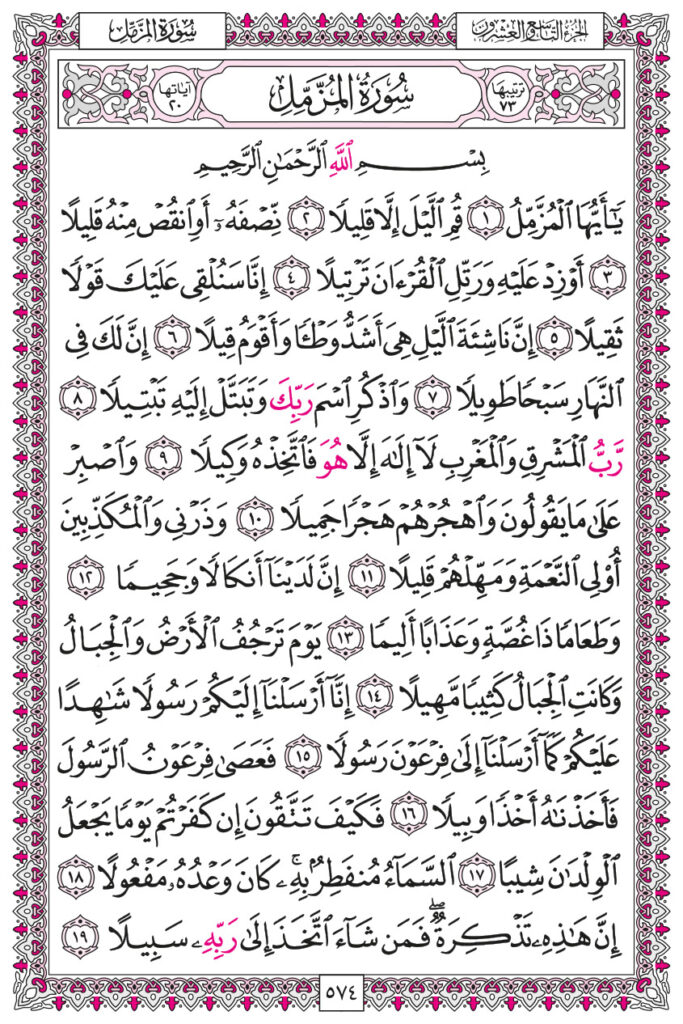 الجزء التاسع والعشرون
سُورَةُ المُزَّمِّل
ترتيبها ٧٣
سُورَةُ الْمُزَّمِّلِ
آياتها ٢٠
بِسْمِ اللَّهِ الرَّحْمَٰنِ الرَّحِيمِ
يَٰٓأَيُّهَا ٱلْمُزَّمِّلُ ١ قُمِ ٱلَّيْلَ إِلَّا قَلِيلًا ٢ نِّصْفَهُۥٓ أَوِ ٱنقُصْ مِنْهُ قَلِيلًا
٣ أَوْ زِدْ عَلَيْهِ وَرَتِّلِ ٱلْقُرْءَانَ تَرْتِيلًا ٤ إِنَّا سَنُلْقِى عَلَيْكَ قَوْلًا
ثَقِيلًا ٥ إِنَّ نَاشِئَةَ ٱلَّيْلِ هِىَ أَشَدُّ وَطْـًٔا وَأَقْوَمُ قِيلًا ٦ إِنَّ لَكَ فِى
ٱلنَّهَارِ سَبْحًا طَوِيلًا ٧ وَٱذْكُرِ ٱسْمَ رَبِّكَ وَتَبَتَّلْ إِلَيْهِ تَبْتِيلًا ٨
رَّبُّ ٱلْمَشْرِقِ وَٱلْمَغْرِبِ لَآ إِلَٰهَ إِلَّا هُوَ فَٱتَّخِذْهُ وَكِيلًا ٩ وَٱصْبِرْ
عَلَىٰ مَا يَقُولُونَ وَٱهْجُرْهُمْ هَجْرًا جَمِيلًا ١٠ وَذَرْنِى وَٱلْمُكَذِّبِينَ
أُو۟لِى ٱلنَّعْمَةِ وَمَهِّلْهُمْ قَلِيلًا ١١ إِنَّ لَدَيْنَآ أَنكَالًا وَجَحِيمًا ١٢
وَطَعَامًا ذَا غُصَّةٍ وَعَذَابًا أَلِيمًا ١٣ يَوْمَ تَرْجُفُ ٱلْأَرْضُ وَٱلْجِبَالُ
وَكَانَتِ ٱلْجِبَالُ كَثِيبًا مَّهِيلًا ١٤ إِنَّآ أَرْسَلْنَآ إِلَيْكُمْ رَسُولًا شَٰهِدًا
عَلَيْكُمْ كَمَآ أَرْسَلْنَآ إِلَىٰ فِرْعَوْنَ رَسُولًا ١٥ فَعَصَىٰ فِرْعَوْنُ ٱلرَّسُولَ
فَأَخَذْنَٰهُ أَخْذًا وَبِيلًا ١٦ فَكَيْفَ تَتَّقُونَ إِن كَفَرْتُمْ يَوْمًا يَجْعَلُ
ٱلْوِلْدَٰنَ شِيبًا ١٧ ٱلسَّمَآءُ مُنفَطِرٌۢ بِهِۦ ۚ كَانَ وَعْدُهُۥ مَفْعُولًا ١٨
إِنَّ هَٰذِهِۦ تَذْكِرَةٌ ۖ فَمَن شَآءَ ٱتَّخَذَ إِلَىٰ رَبِّهِۦ سَبِيلًا ١٩
٥٧٤